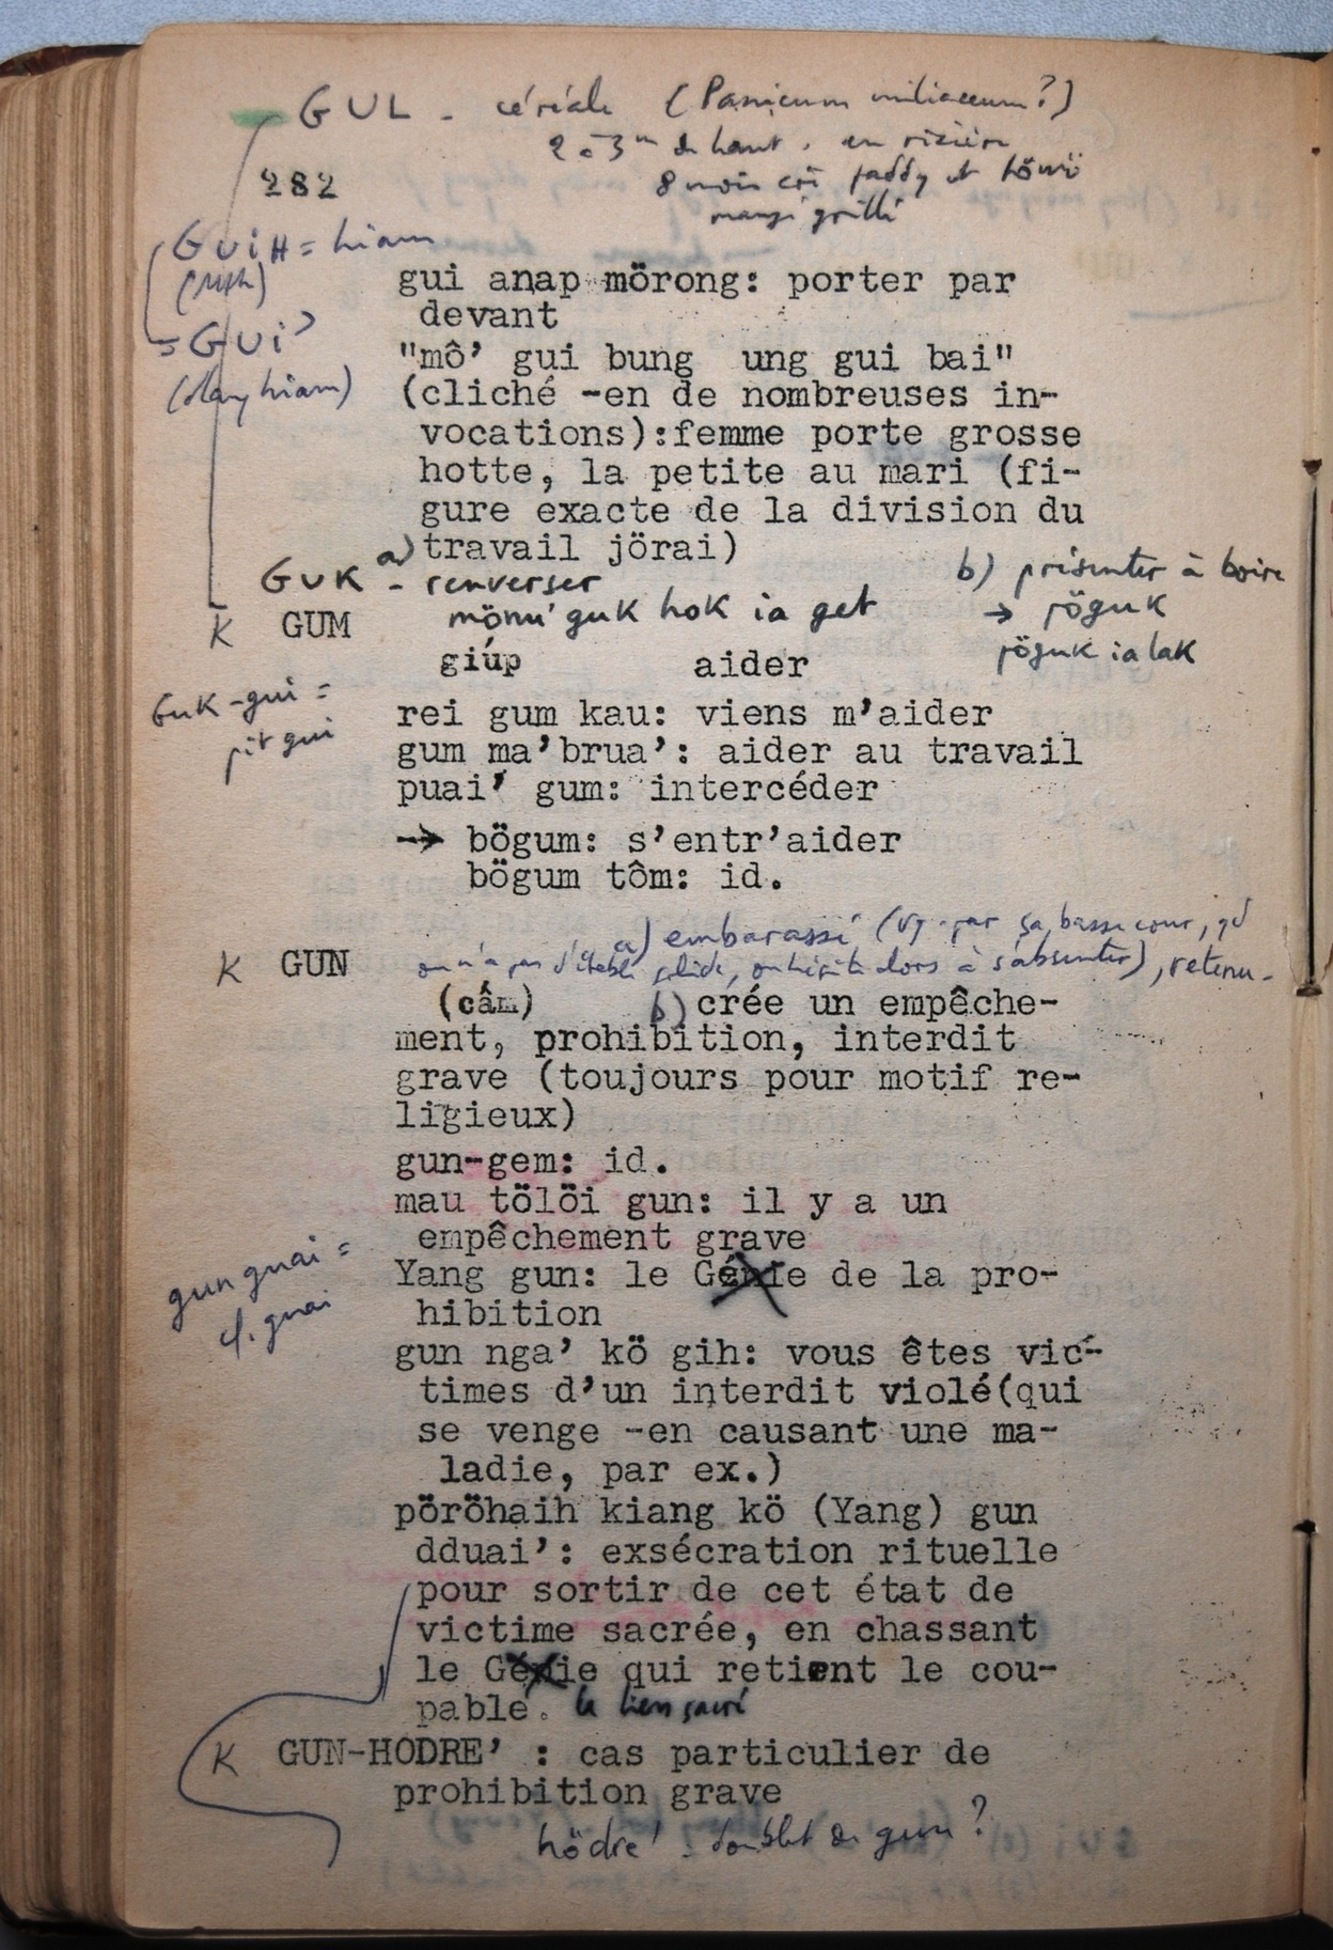 GUL - céréale (Panicum miliaceum?)
2 à 3m de haut, en rizière
282
8 mois cöi paddy et
mangé grillé
GUIH = hiam
gui anap mörong: porter par
devant
= GUI'
"mô' gui bung ung gui bai"
(dlang hiam)
(cliché -en de nombreuses in-
vocations):femme porte grosse
hotte, la petite au mari (fi-
gure exacte de la division du
travail jörai)
GUK a) - renverser
b) présenter à boire
mönu' guk hok ia get
→ pöguk
K GUM
giúp aider
pöguk ia lak
Guk-gui =
pit gui
rei gum kau: viens m'aider
gum ma'brua': aider au travail
puai' gum: intercéder
→ bögum: s'entr'aider
bögum tôm: id.
a) embarassé (vg. par sa basse cour, qd
K GUN
on n'a pas d'étable solide, on hésite alors à s'absenter), retenu -
(cấm) b) crée un empêche-
ment, prohibition, interdit
grave (toujours pour motif re-
ligieux)
gun-gem: id.
mau tölöi gun: il y a un
empêchement grave
gun guai =
cf. guai
Yang gun: le Génie de la pro-
hibition
gun nga' kö gih: vous êtes vic-
times d'un interdit violé(qui
se venge -en causant une ma-
ladie, par ex.)
pöröhaih kiang kö (Yang) gun
dduai': exsécration rituelle
pour sortir de cet état de
victime sacrée, en chassant
le Génie qui retient le cou-
pable. le lien sacré
K GUN-HODRE' : cas particulier de
prohibition grave
hödre' : doublet de gun ?